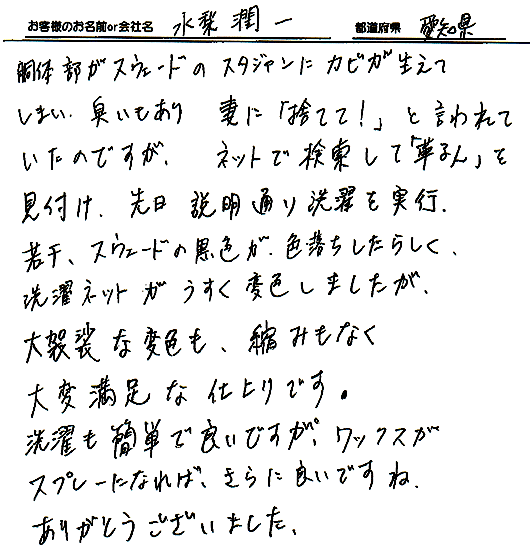 お客様のお名前or会社名 水梨 潤一 都道府県 愛知県
胴体部がスウェードのスタジャンにカビが生えて
しまい、臭いもあり 妻に「捨てて!」と言われて
いたのですが、 ネットで検索して「革るん」を
見付け、先日 説明通り洗濯を実行、
若干、スウェードの黒色が、色落ちしたらしく、
洗濯ネットが うすく変色しましたが、
大袈裟な変色も、縮みもなく
大変満足な仕上りです。
洗濯も簡単で良いですが、ワックスが
スプレーになれば、さらに良いですね、
ありがとうございました、